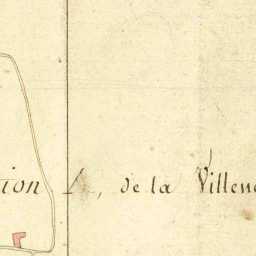 tion A, de la Villeneu